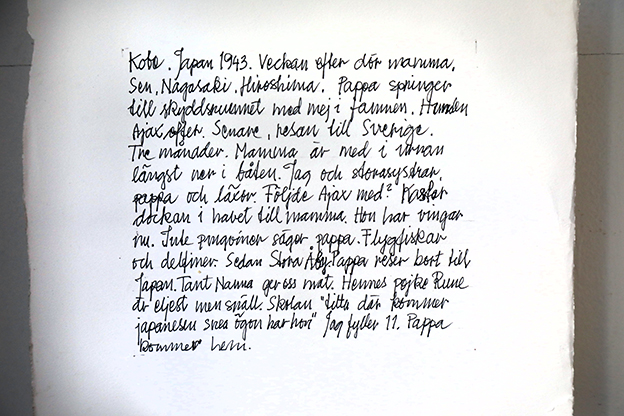 Kobe. Japan 1943. Veckan efter dör mamma.
Sen, Nagasaki, Hiroshima. Pappa springer
till skyddsrummet med mej i famnen. Hunden
Ajax, efter. Senare, resan till Sverige.
Tre månader. Mamma är med i urnan
längst ner i båten. Jag och storasystrar,
pappa och läxor. Följde Ajax med? Kastar
dockan i havet till mamma. Hon har vingar
nu. Inte pingviner säger pappa. Flygfiskar
och delfiner. Sedan Stora Åby. Pappa reser bort till
Japan. Tant Nanna ger oss mat. Hennes pojke Rune
är eljest men snäll. Skolan "titta där kommer
japanesen snea ögon har hon" Jag fyller 11. Pappa
kommer hem.